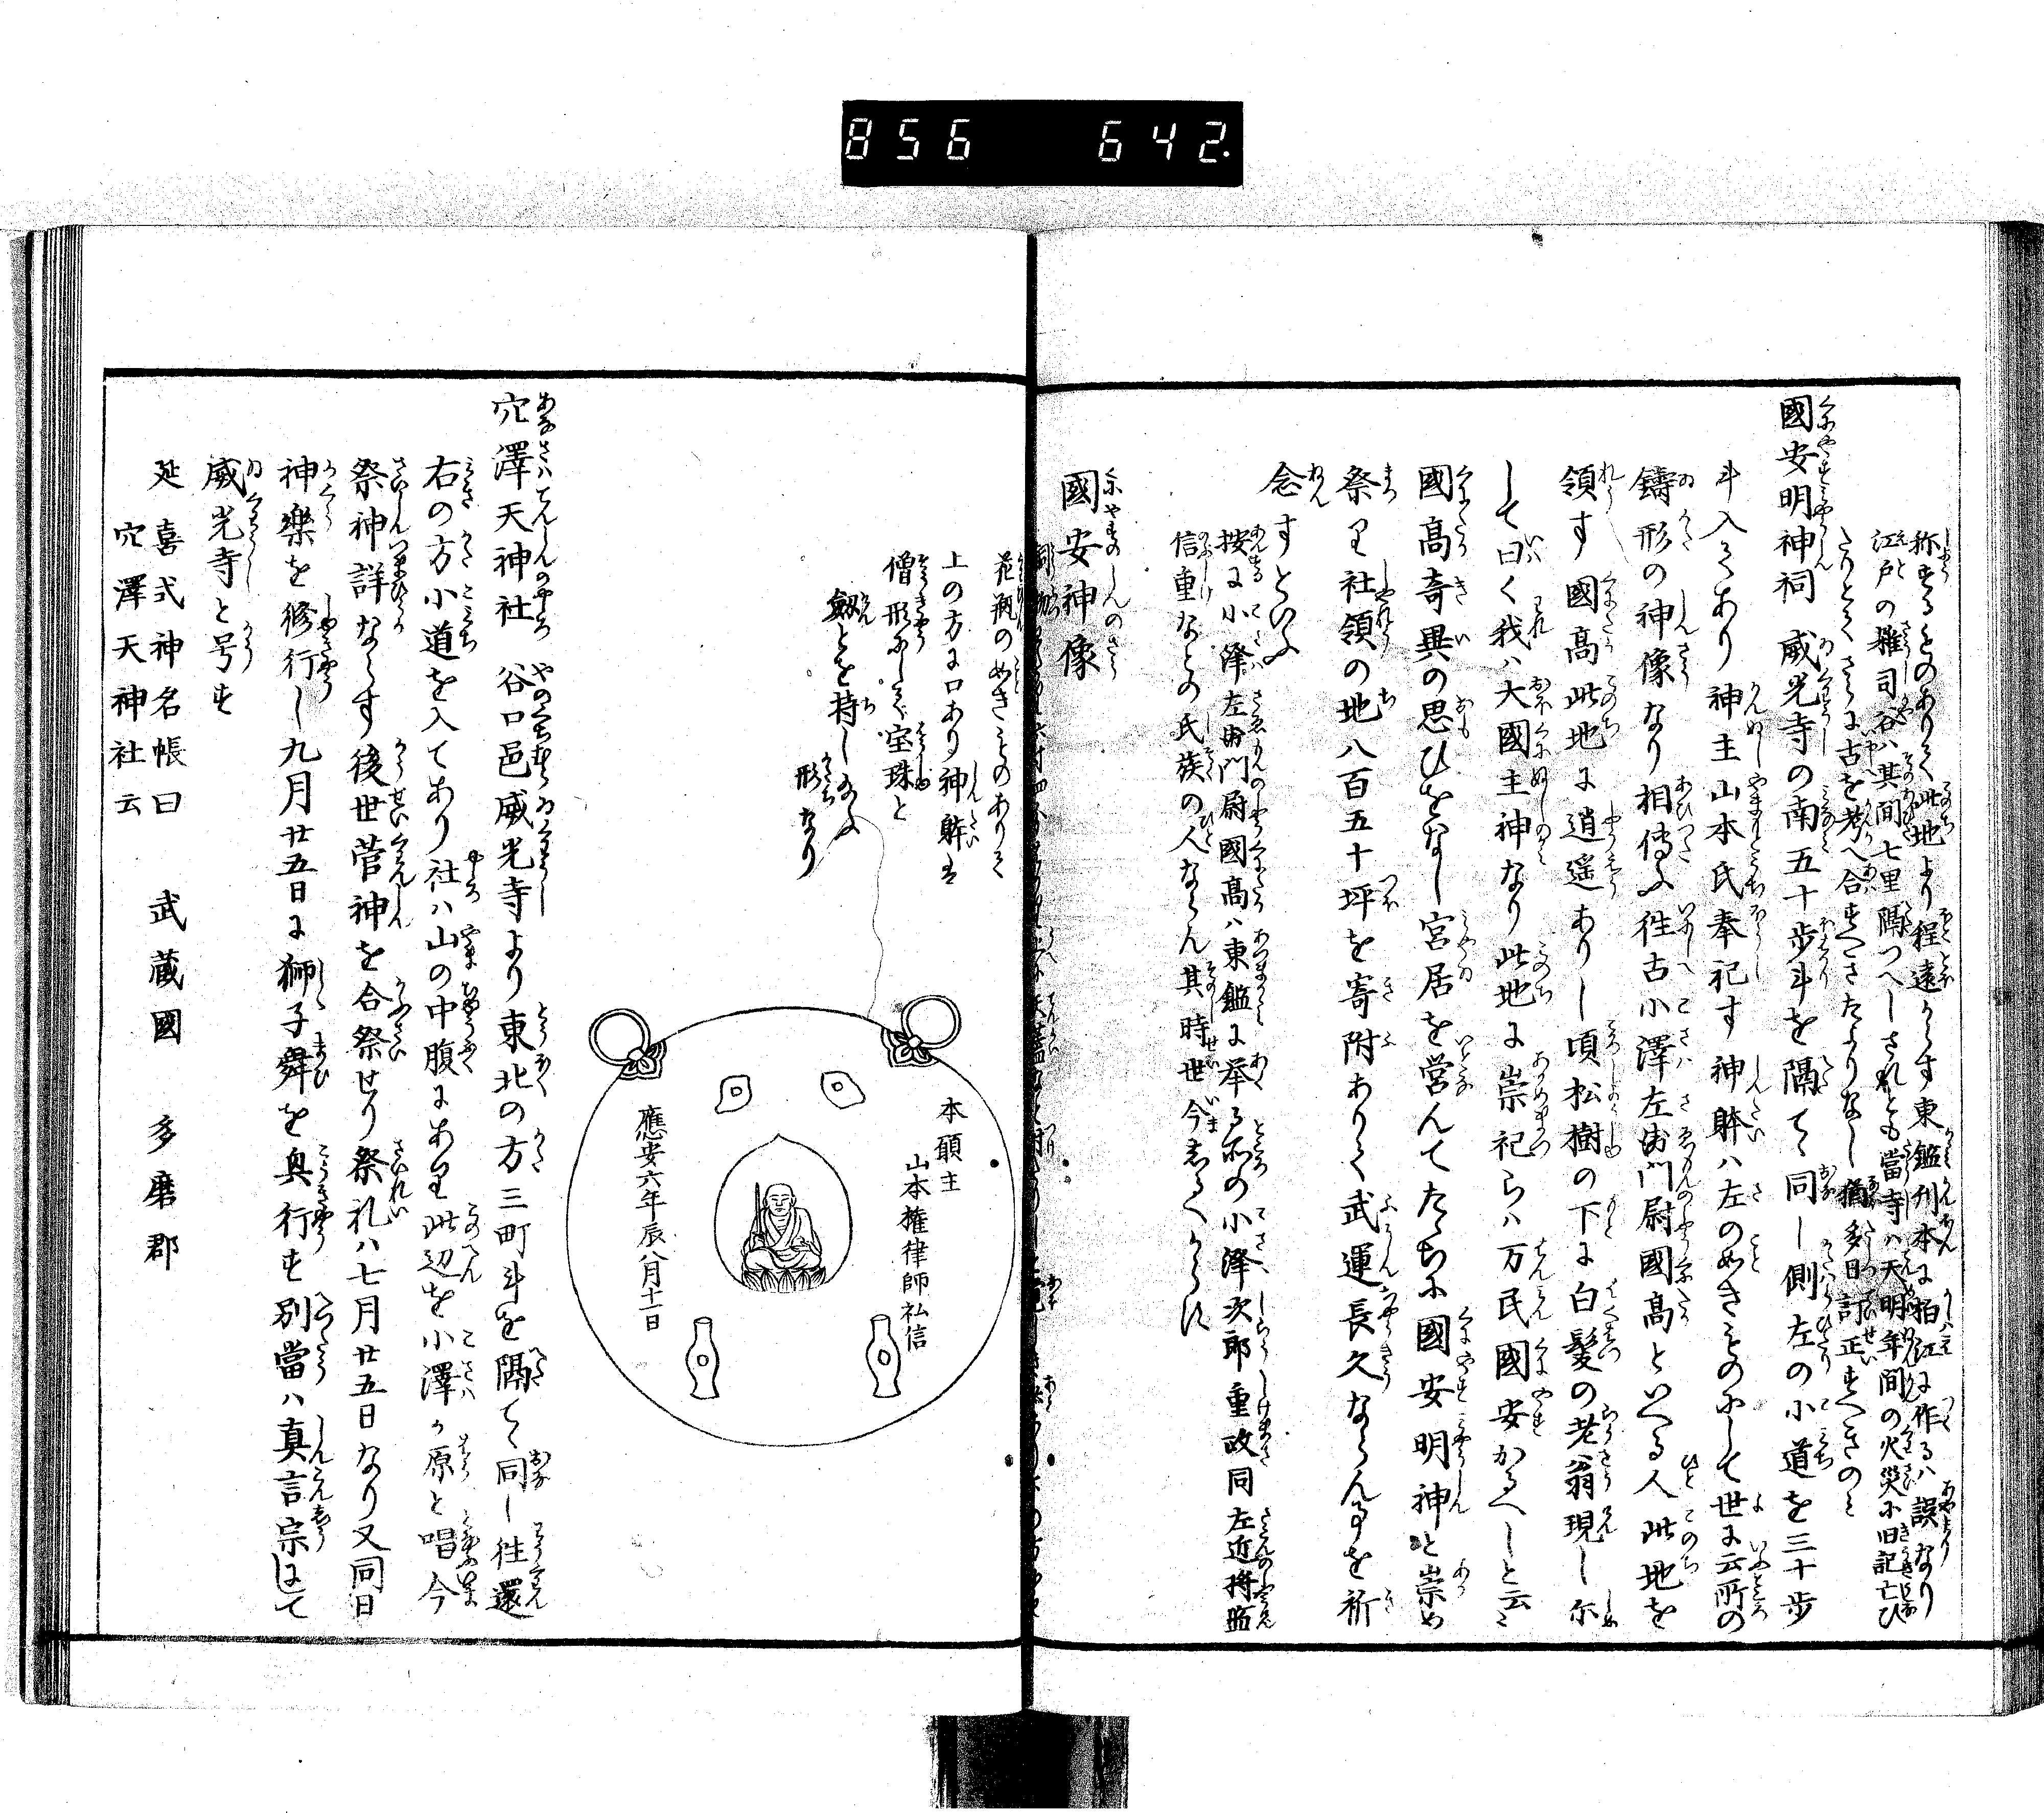 856 642.
称するものありて此地より程遠からす東鑑刊本に柏江に作るハ誤なり
江戸の雑司谷ハ其間七里隔つへしされとも當寺ハ天明年間の火災に旧記亡ひ
たりとてさらに古を考へ合すへきたよりなし猶多日訂正すへきのミ
國安明神祠 威光寺の南五十歩斗を隔てゝ同し側左の小道を三十歩
斗入てあり神主山本氏奉祀す神躰ハ左のめきものにして世に云所の
鑄形の神像なり相傳ふ徃古小澤左衛門尉國高といへる人此地を
領す國高此地に逍遥ありし頃松樹の下に白髪の老翁現し尓
して曰く我ハ大國主神なり此地に崇祀らハ万民國安かるへしと云々
國高竒異の思ひをなし宮居を営んてたゝちに國安明神と崇め
祭り社領の地八百五十坪を寄附ありて武運長久ならん事を祈
念すといふ
按に小澤左衛門尉國高ハ東鑑に挙る所の小澤次郎重政同左近将監
信重なとの氏族の人ならん其時世今しるへからす
國安神像
花瓶のめきものありて
上の方に口あり神躰は
僧形にして宝珠と
劔とを持し給ふ
形なり
本願主
山本権律師弘信
應安六年辰八月十一日
穴澤天神社 谷口邑威光寺より東北の方三町斗を隔てゝ同し徃還
右の方小道を入てあり社ハ山の中腹にあり此辺を小澤か原と唱今
祭神詳ならす後世菅神を合祭せり祭礼ハ七月廿五日なり又同日
神樂を修行し九月廿五日に獅子舞を興行す別當ハ真言宗にして
威光寺と号す
延喜式神名帳曰 武蔵國 多磨郡
穴澤天神社云